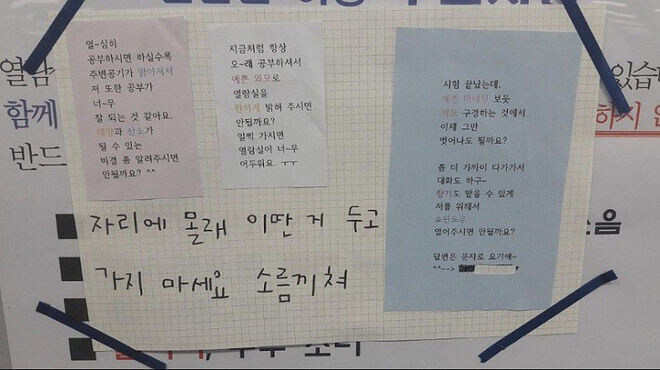 열~심히
공부하시면 하실수록
주변공기가 맑아져서
저 또한 공부가
너~무
잘 되는 것 같아요.
태양과 산소가
될 수 있는
비결 좀 알려주시면
안될까요? ^^
지금처럼 항상
오~래 공부하셔서
예쁜 외모로
열람실을
환하게 밝혀 주시면
안될까요?
일찍 가시면
열람실이 너~무
어두워요. ㅜㅜ
시험 끝났는데,
예쁜 마네킹 보듯
외모 구경하는 것에서
이제 그만
벗어나도 될까요?
좀 더 가까이 다가가서
대화도 하구~
향기도 맡을 수 있게
저를 위해서
쇼윈도우
열어주시면 안될까요?
답변은 문자로 요기에~
^^-->
자리에 몰래 이딴 거 두고
가지 마세요 소름끼쳐
열람
함께
반드
있습
하지 않
음